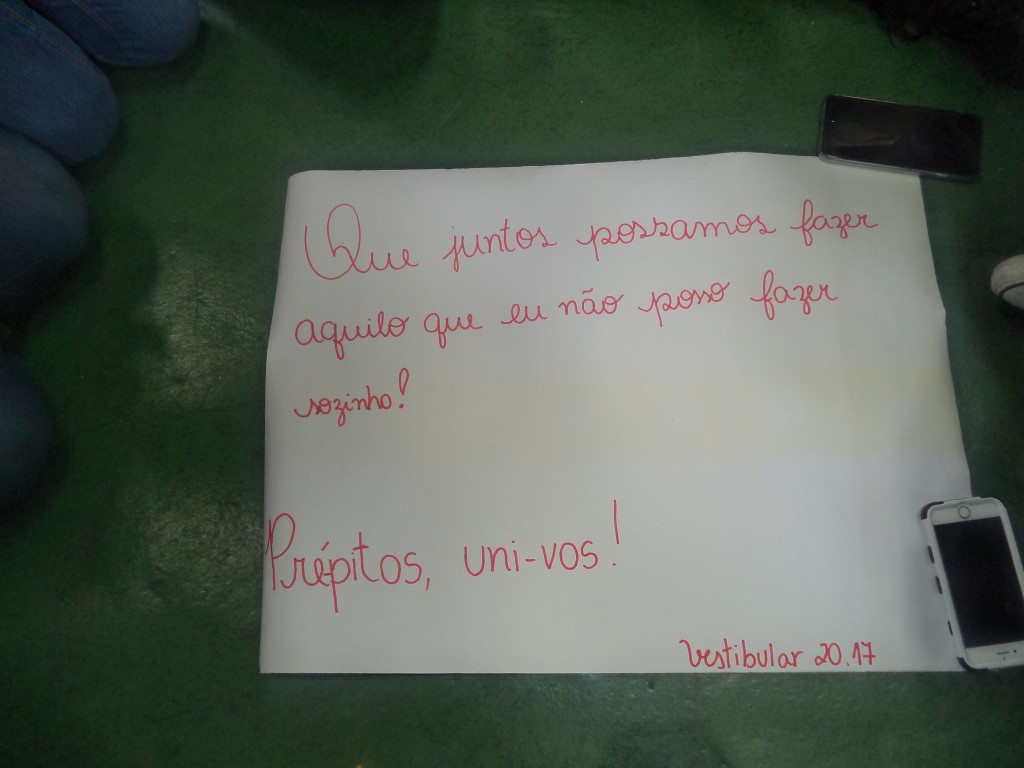 Que juntos possamos fazer
aquilo que eu não posso fazer
sozinho!
Prépitos, uni-vos!
Vestibular 20.17